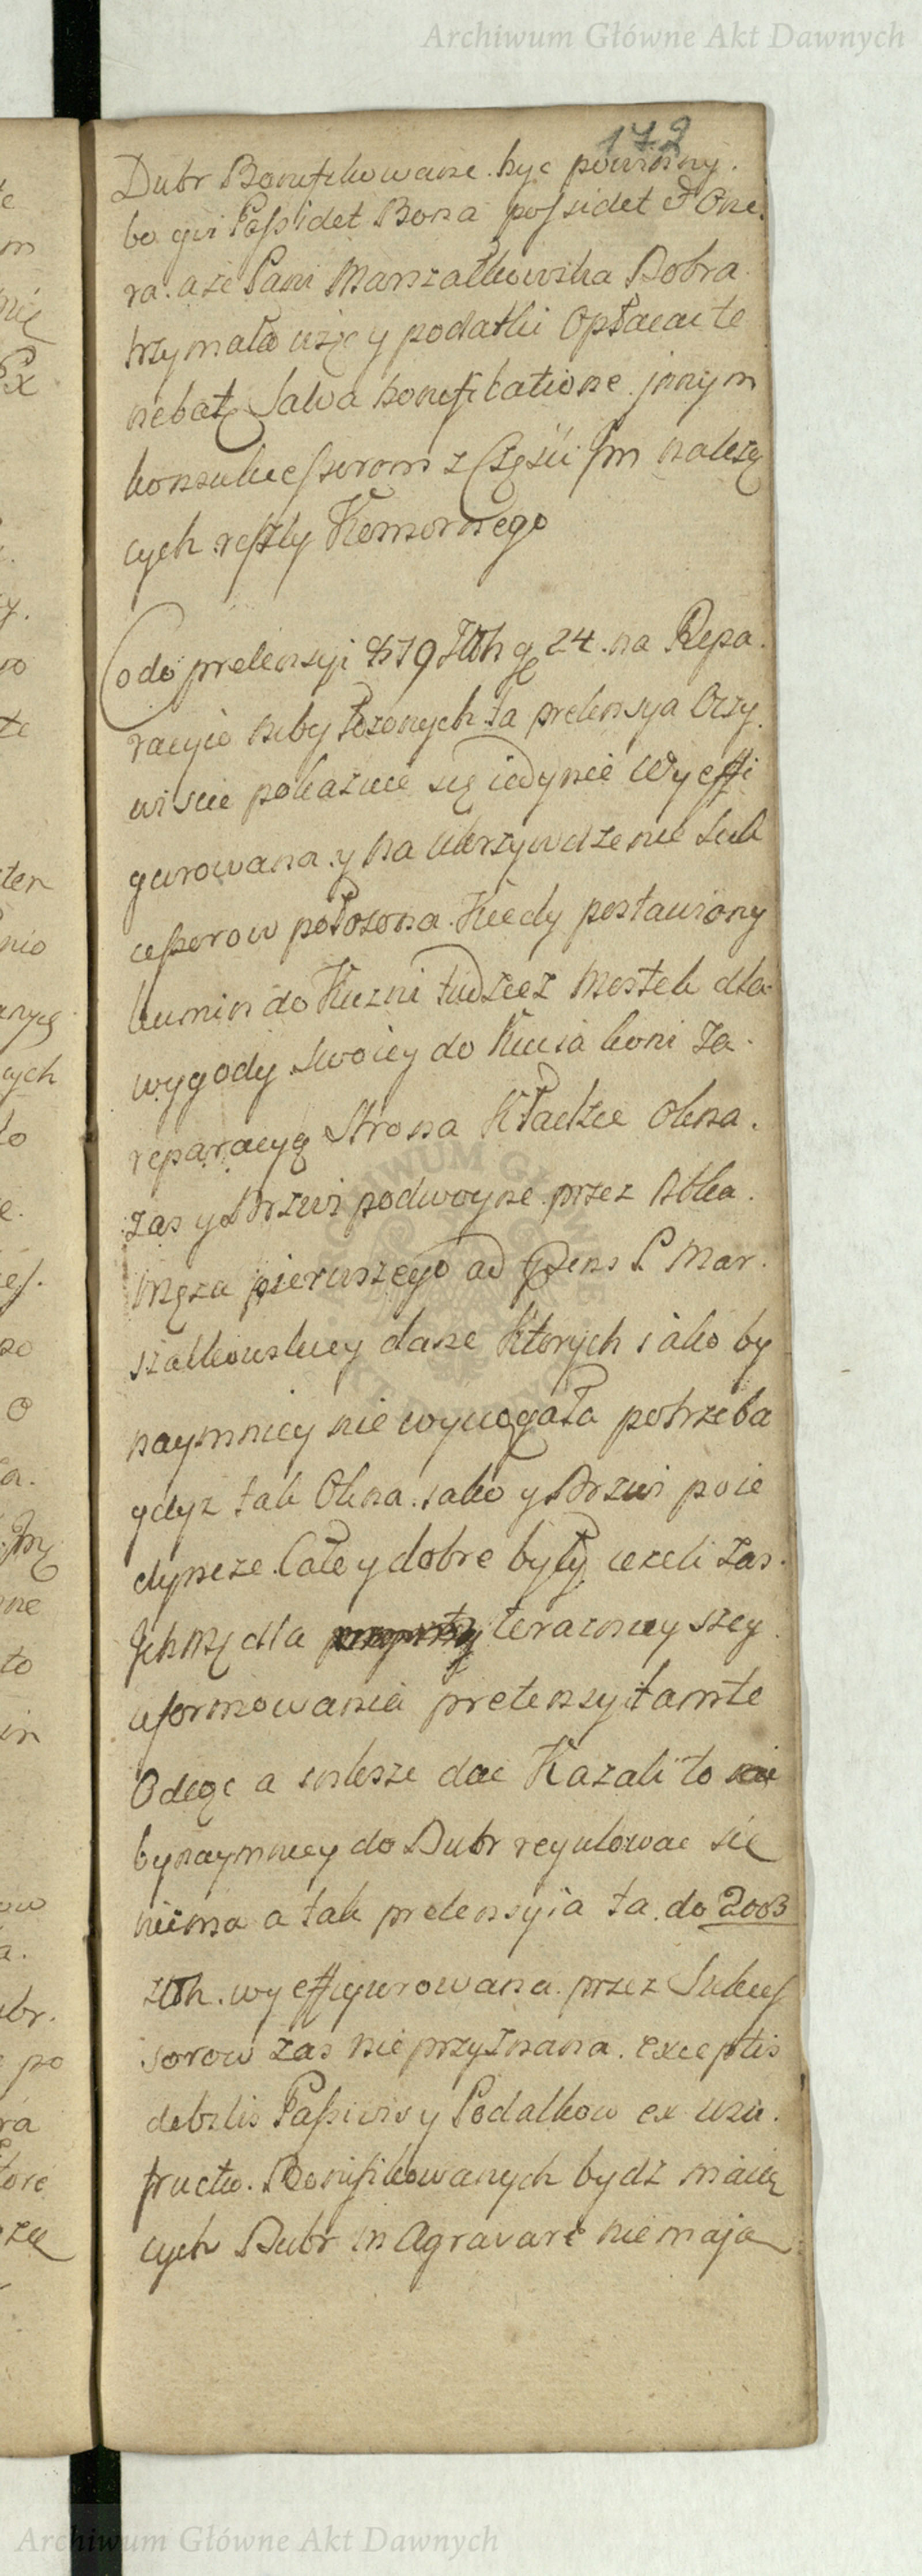 Archiwum Główne Akt Dawnych
172
Dubr Bonifikowane być powinny.
bo qvi Possidet Bona possidet & One
ra. aże Pani Marszałkowska Dobra
trzymała więc y podatki Opłacać te
nebat Salva bonificatione innym
konsukcessorom z Części Im należą
cych reszty Komornego
Co do pretensyi 879 Złth gr 24. na Repa
racyie niby łożonych ta pretensya Oczy
wiscie pokazuie się iedynie Wyeffi
gurowana y na Ukrzywdzenie Suk
cessorow położona. Kiedy postawiony
kumin do Kuzni tudziez Mostek dla
wygody swoiey do Kucia koni za
reparacyą Strona Kładzie Okna.
zas y Drzwi podwoyne przez
Męza pierwszego ad Psens P Mar
szałkowskiey dane Ktorych iako by
naymniey nie wyciągała potrzeba
gdyz tak Okna. iako y Drzwi poie
dyncze. Całe y dobre były iezeli zas
Ichmć dla terazniey szey
uformowania pretensyi tamte
Odiąć a insze dać Kazali to
bynaymniey do Dubr regulowac się
niema a tak pretensyia ta. do 2003
złth. wyeffigurowana przez Sukces
sorow zas nie przyznana. exceptis
debitis Passivis y Podatkow ex usu
fructu. Bonifikowanych bydz maią
cych Dubr in Agravare nie maja
Archiwum Główne Akt Dawnych